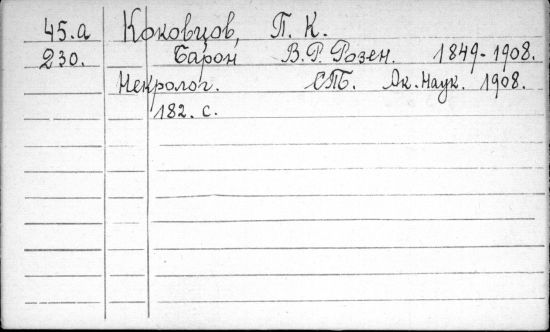 45.а Коковцов, П. К.
230. Барон В. Р. Розен. 1849-1908.
Некролог. СПБ. Ак. Наук. 1908.
182. с.